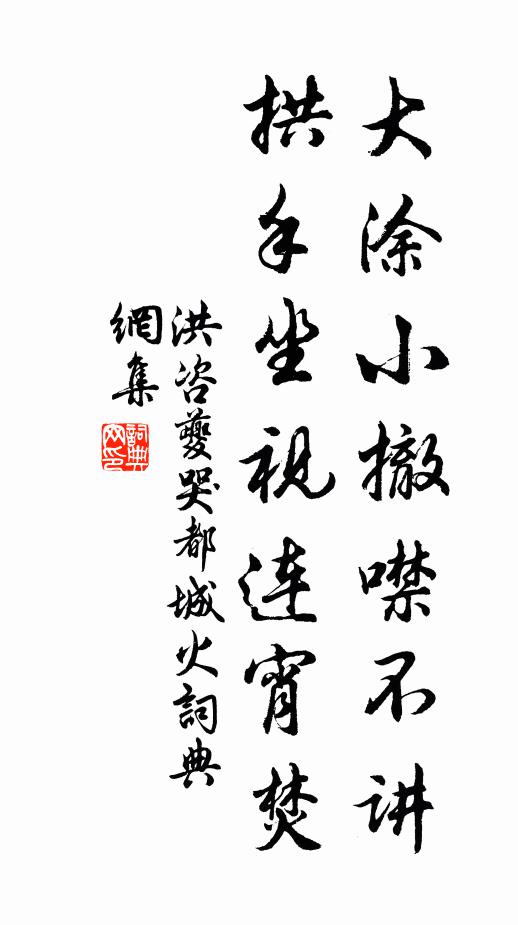 大涂小撤噤不讲
拱手坐视连宵焚
洪咨夔哭都城火詞典
網集
詞典网印